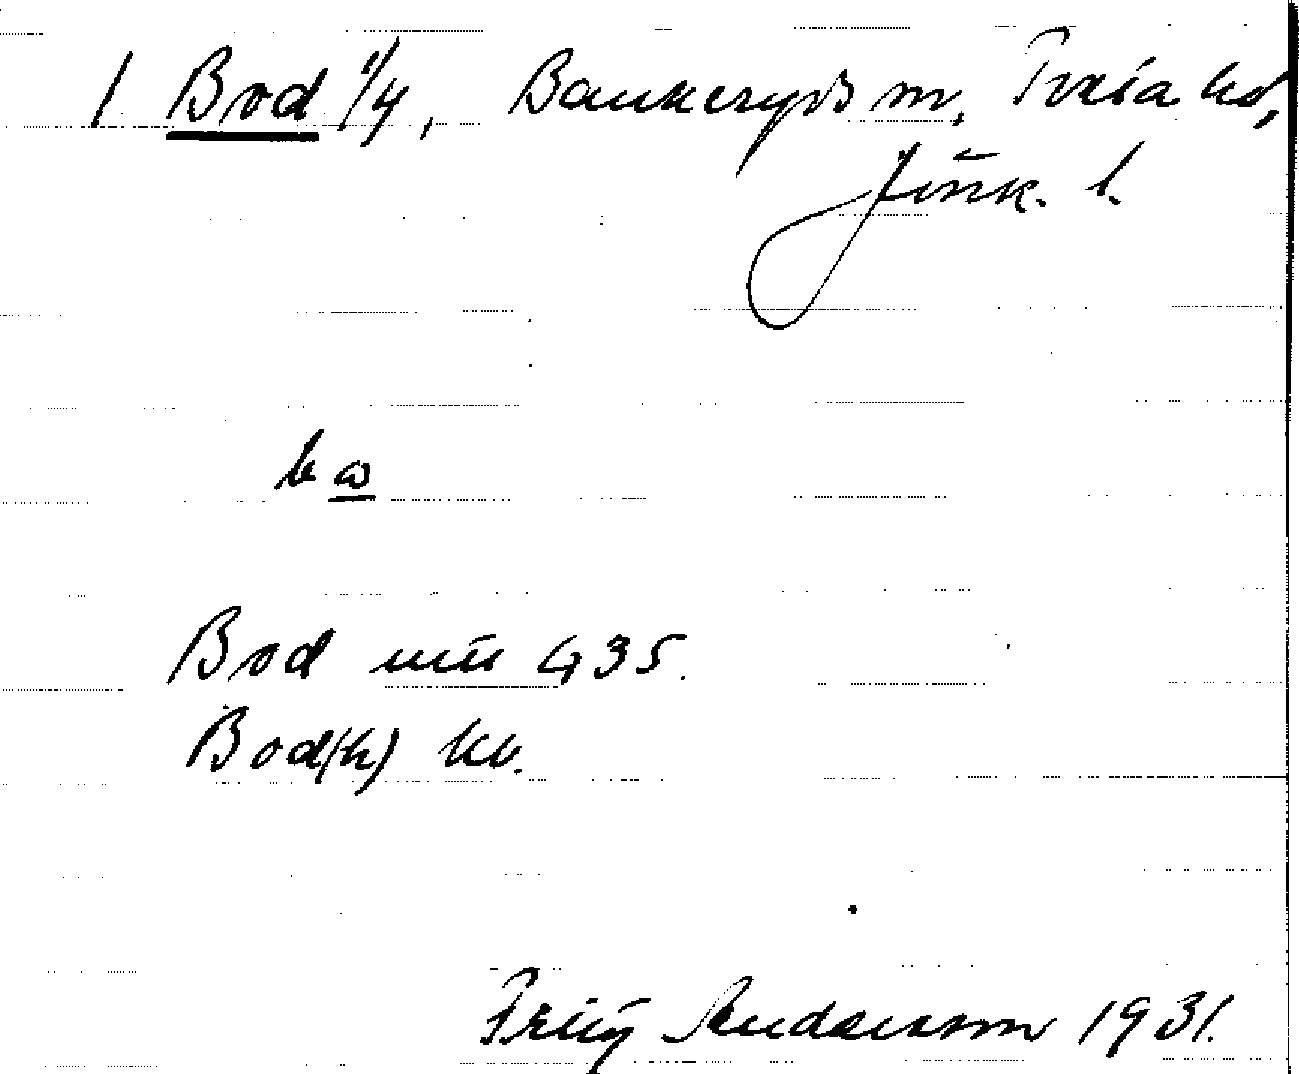 1 Bod 1/4, Bankeryds sn, Tveta hd,
Jönk. l.
bω
Bod mtu 435.
Bod(h) kb.
Fritz Anderson 1931.